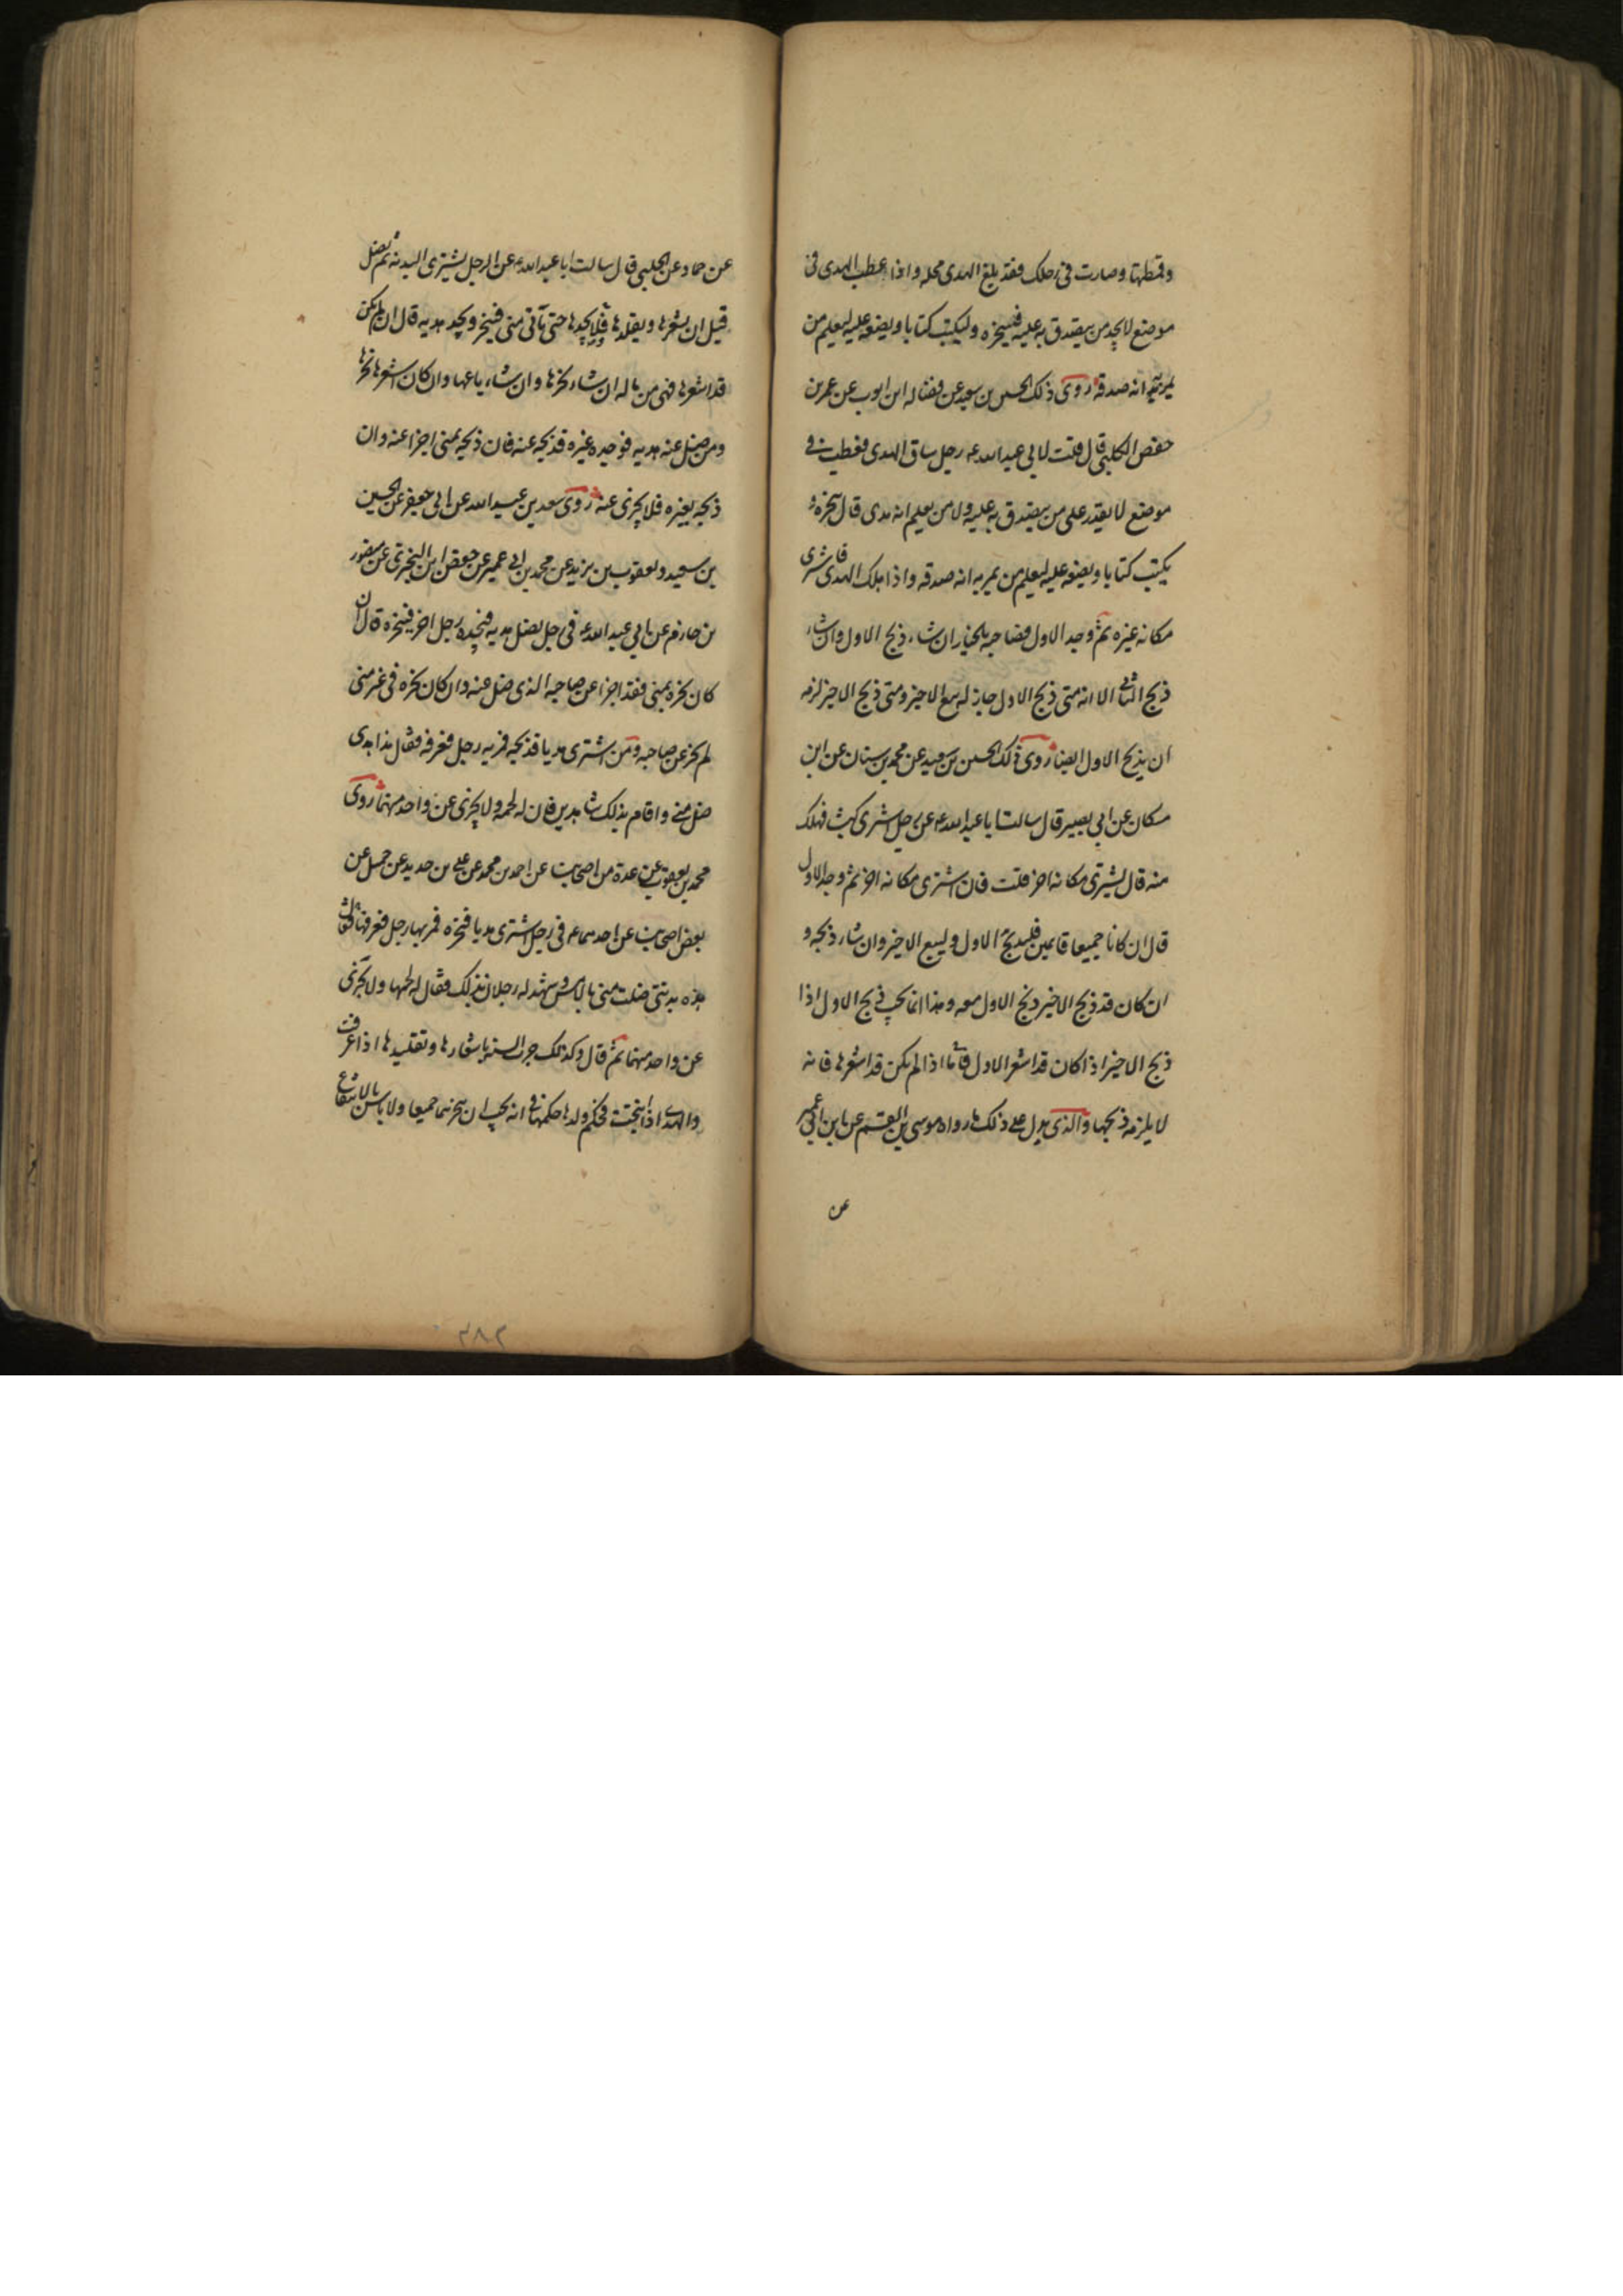 وقمطتها وصارت في رحلك فقد بلغ الهدى محله واذا عطب الهدى في
موضع لا يجد من يتصدق به عليه فلينحره وليكتب كتابا ويضعه عليه ليعلم من
يمر به انه صدقه روى ذلك الحسين بن سعيد عن فضاله ابن ايوب عن عمر بن
حفص الكلبي قال قلت لابي عبد الله ع رجل ساق الهدى فعطب في
موضع لا يقدر على من يتصدق به عليه ولا من يعلم انه هدى قال ينحره و
يكتب كتابا ويضعه عليه ليعلم من يمر به انه صدقه واذا هلك الهدى فاشترى
مكانه غيره ثم وجد الاول فصاحبه بالخيار ان شاء ذبح الاول وان شاء
ذبح الثاني الا انه متى ذبح الاول جاز له بيع الاخير ومتى ذبح الاخير لزمه
ان يذبح الاول ايضا روى ذلك الحسين بن سعيد عن محمد بن سنان عن ابن
مسكان عن ابي بصير قال سالت ابا عبد الله ع عن رجل اشترى كبشا فهلك
منه قال يشترى مكانه اخر قلت فان اشترى مكانه اخر ثم وجد الاول
قال ان كانا جميعا قايمين فليذبح الاول وليبع الاخير وان شاء ذبحه و
ان كان قد ذبح الاخير ذبح الاول معه وهذا انما يجب ذبح الاول اذا
ذبح الاخير اذا كان قد اشعر الاول فاما اذا لم يكن قد اشعرها فانه
لا يلزمه ذبحها والذى يدل على ذلك ما رواه موسى بن القسم عن ابن ابي عمير
عن
عن حماد عن الحلبي قال سالت ابا عبد الله ع عن الرجل يشترى البدنه ثم تضل
قبل ان يشعرها ويقلدها فلا يجدها حتى ياتى منى فينحر ويجد هديه قال ان لم يكن
قد اشعرها فهى من ماله ان شاء نحرها وان شاء باعها وان كان اشعرها نحرها
ومن ضل عنه هديه فوجده غيره فذبحه عنه فان ذبحه بمنى اجزا عنه وان
ذبحه بغيره فلا يجزى عنه روى سعد بن عبد الله عن ابي جعفر عن الحسين
بن سعيد ويعقوب بن يزيد عن محمد بن ابي عمير عن حفص ابن البخترى عن منصور
بن حازم عن ابي عبد الله ع في رجل يضل هديه فيجده رجل اخر فينحره قال ان
كان نحره بمنى فقد اجزا عن صاحبه الذى ضل عنه وان كان نحره في غير منى
لم يجز عن صاحبه ومن اشترى هديا فذبحه فمر به رجل فعرفه فقال هذا هدى
ضل منى واقام بذلك شاهدين فان له لحمه ولا يجزى عن واحد منهما روى
محمد بن يعقوب عن عدة من اصحابنا عن احمد بن محمد عن علي بن حديد عن جميل عن
بعض اصحابنا عن احدهما ع في رجل اشترى هديا فنحره فمر بها رجل فعرفها فقال
هذه بدنتى ضلت منى بالامس وشهد له رجلان بذلك فقال له لحمها ولا يجزى
عن واحد منهما ثم قال وكذلك جرت السنه باشعارها وتقليدها اذا عرفت
والهدى اذا انتجت فحكم ولدها حكمها في انه يجب ان ينحرهما جميعا ولا باس بالانتفاع
٢٨٢